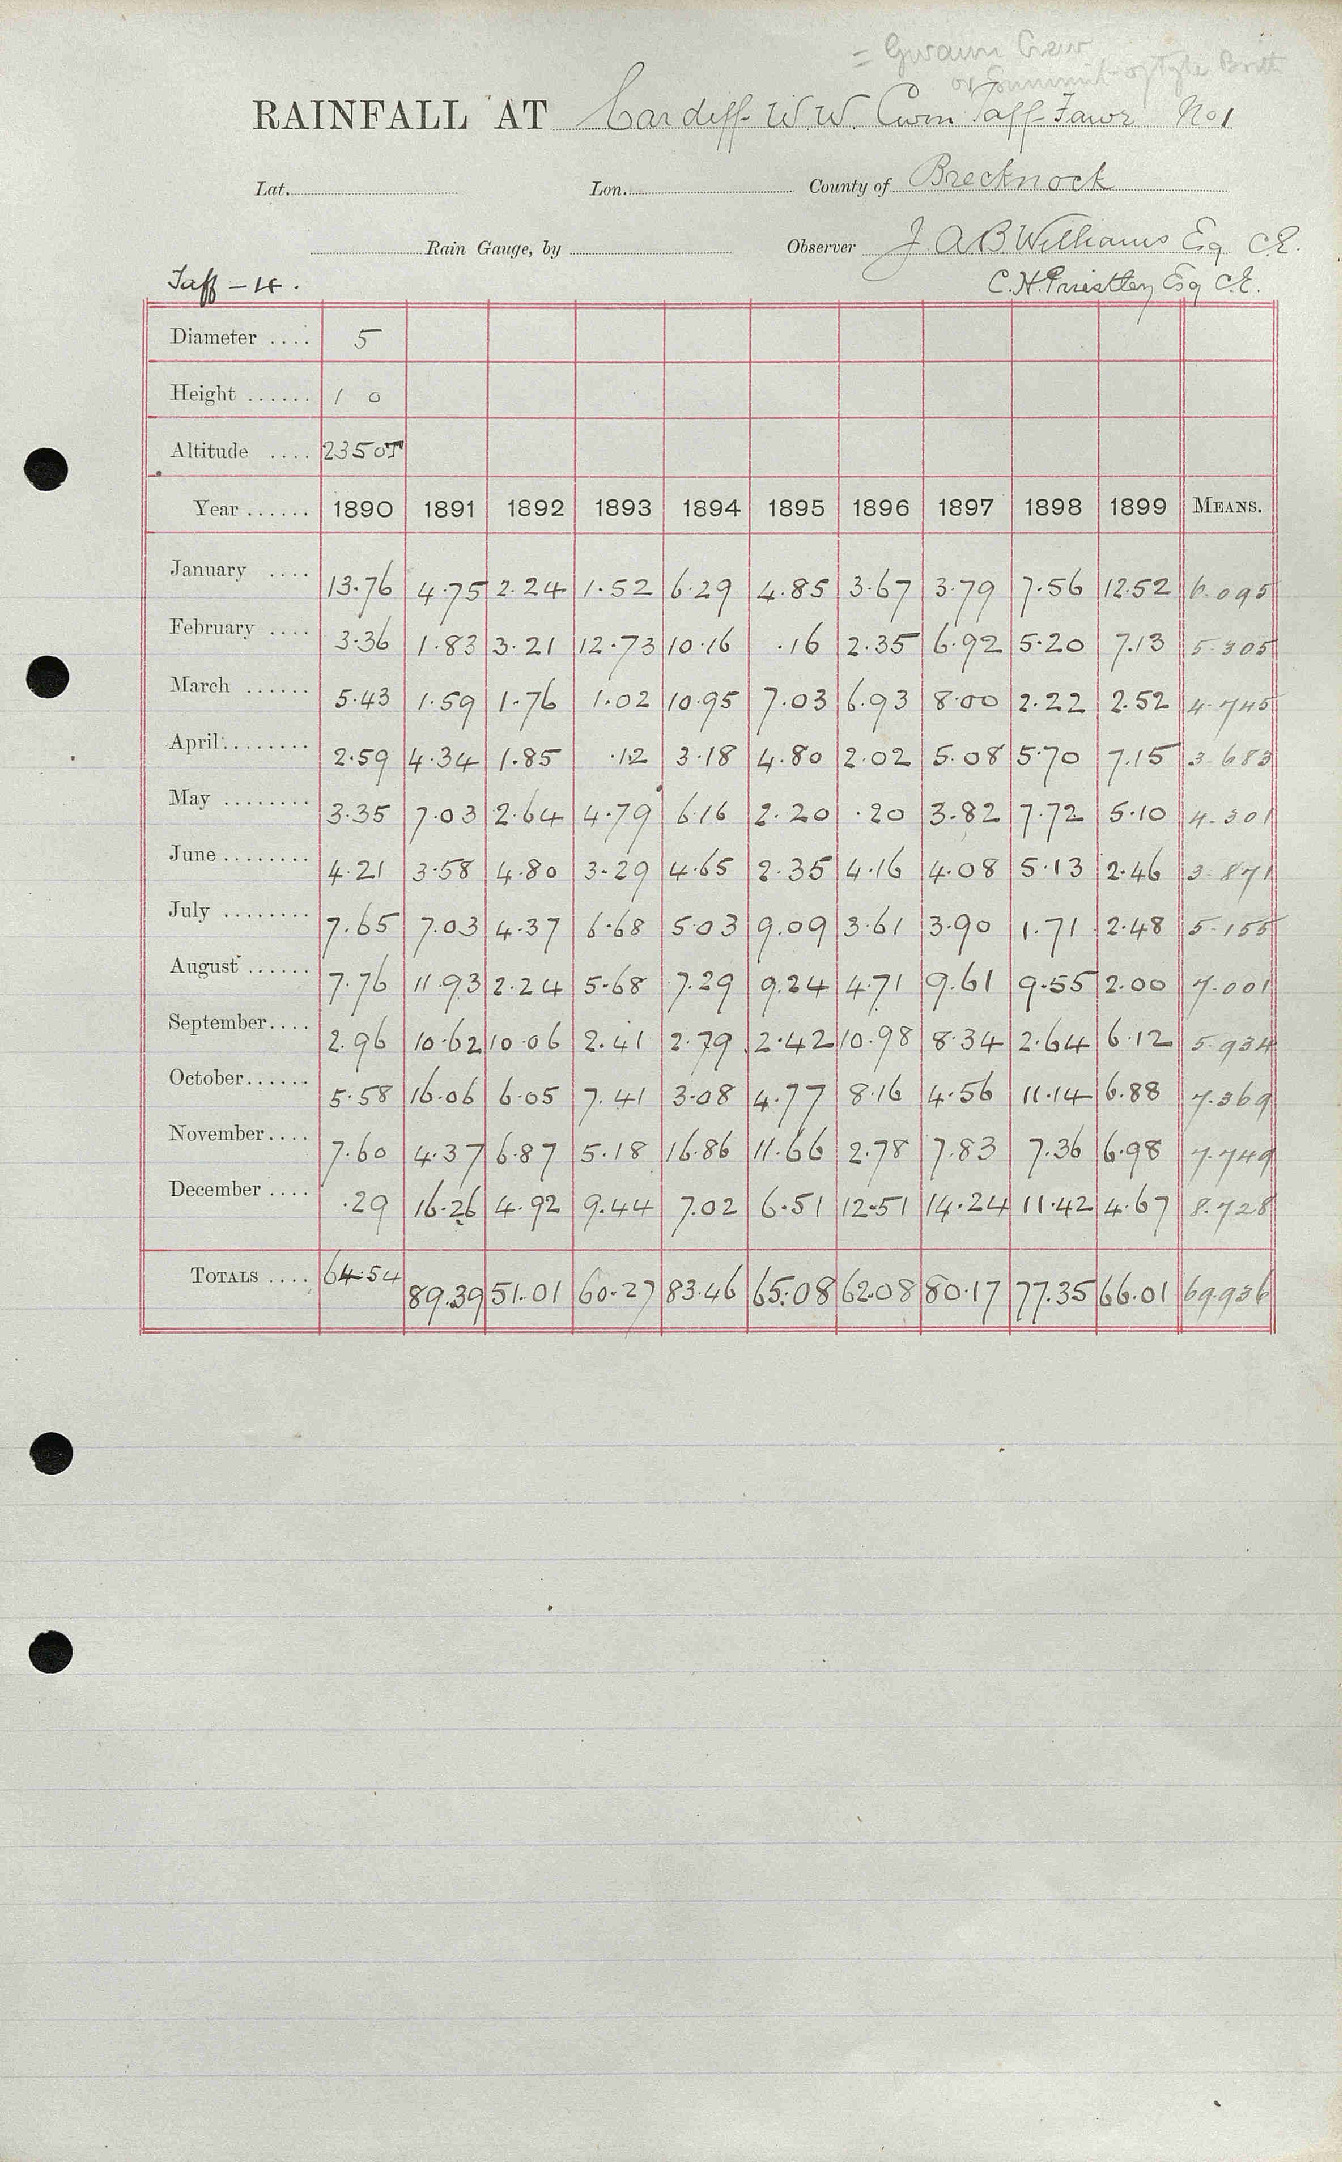 = Gwaun Crew
or Summit of
RAINFALL AT Cardiff W.W. Cwm Taff Fawr No 1
Lat. Lon. County of Brecknock
Rain Gauge, by Observer J. A. B. Williams Esq C.E.
Taff - 4. C. H. Priestley Esq C.E.
Diameter .... 5
Height ...... 1 0
Altitude .... 2350T
Year ...... 1890 1891 1892 1893 1894 1895 1896 1897 1898 1899 MEANS.
January .... 13.76 4.75 2.24 1.52 6.29 4.85 3.67 3.79 7.56 12.52 6.095
February .... 3.36 1.83 3.21 12.73 10.16 .16 2.35 6.92 5.20 7.13 5.305
March ...... 5.43 1.59 1.76 1.02 10.95 7.03 6.93 8.00 2.22 2.52 4.745
April ........ 2.59 4.34 1.85 .12 3.18 4.80 2.02 5.08 5.70 7.15 3.683
May ........ 3.35 7.03 2.64 4.79 6.16 2.20 .20 3.82 7.72 5.10 4.301
June ........ 4.21 3.58 4.80 3.29 4.65 2.35 4.16 4.08 5.13 2.46 3.871
July ........ 7.65 7.03 4.37 6.68 5.03 9.09 3.61 3.90 1.71 2.48 5.155
August ...... 7.76 11.93 2.24 5.68 7.29 9.24 4.71 9.61 9.55 2.00 7.001
September .... 2.96 10.62 10.06 2.41 2.79 2.42 10.98 8.34 2.64 6.12 5.934
October ...... 5.58 16.06 6.05 7.41 3.08 4.77 8.16 4.56 11.14 6.88 7.369
November .... 7.60 4.37 6.87 5.18 16.86 11.66 2.78 7.83 7.36 6.98 7.749
December .... .29 16.26 4.92 9.44 7.02 6.51 12.51 14.24 11.42 4.67 8.728
TOTALS .... 64.54 89.39 51.01 60.27 83.46 65.08 62.08 80.17 77.35 66.01 69.936